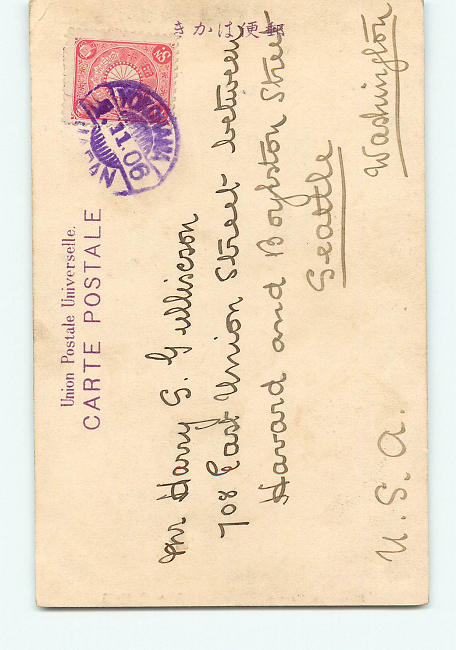 郵便はかき
Union Postale Universelle.
CARTE POSTALE
YOKOHAMA
11.06
JAPAN
Mr Harry S. Gullixson
708 East Union Street between
Havard and Boylston Street
Seattle
Washington
U. S. A.